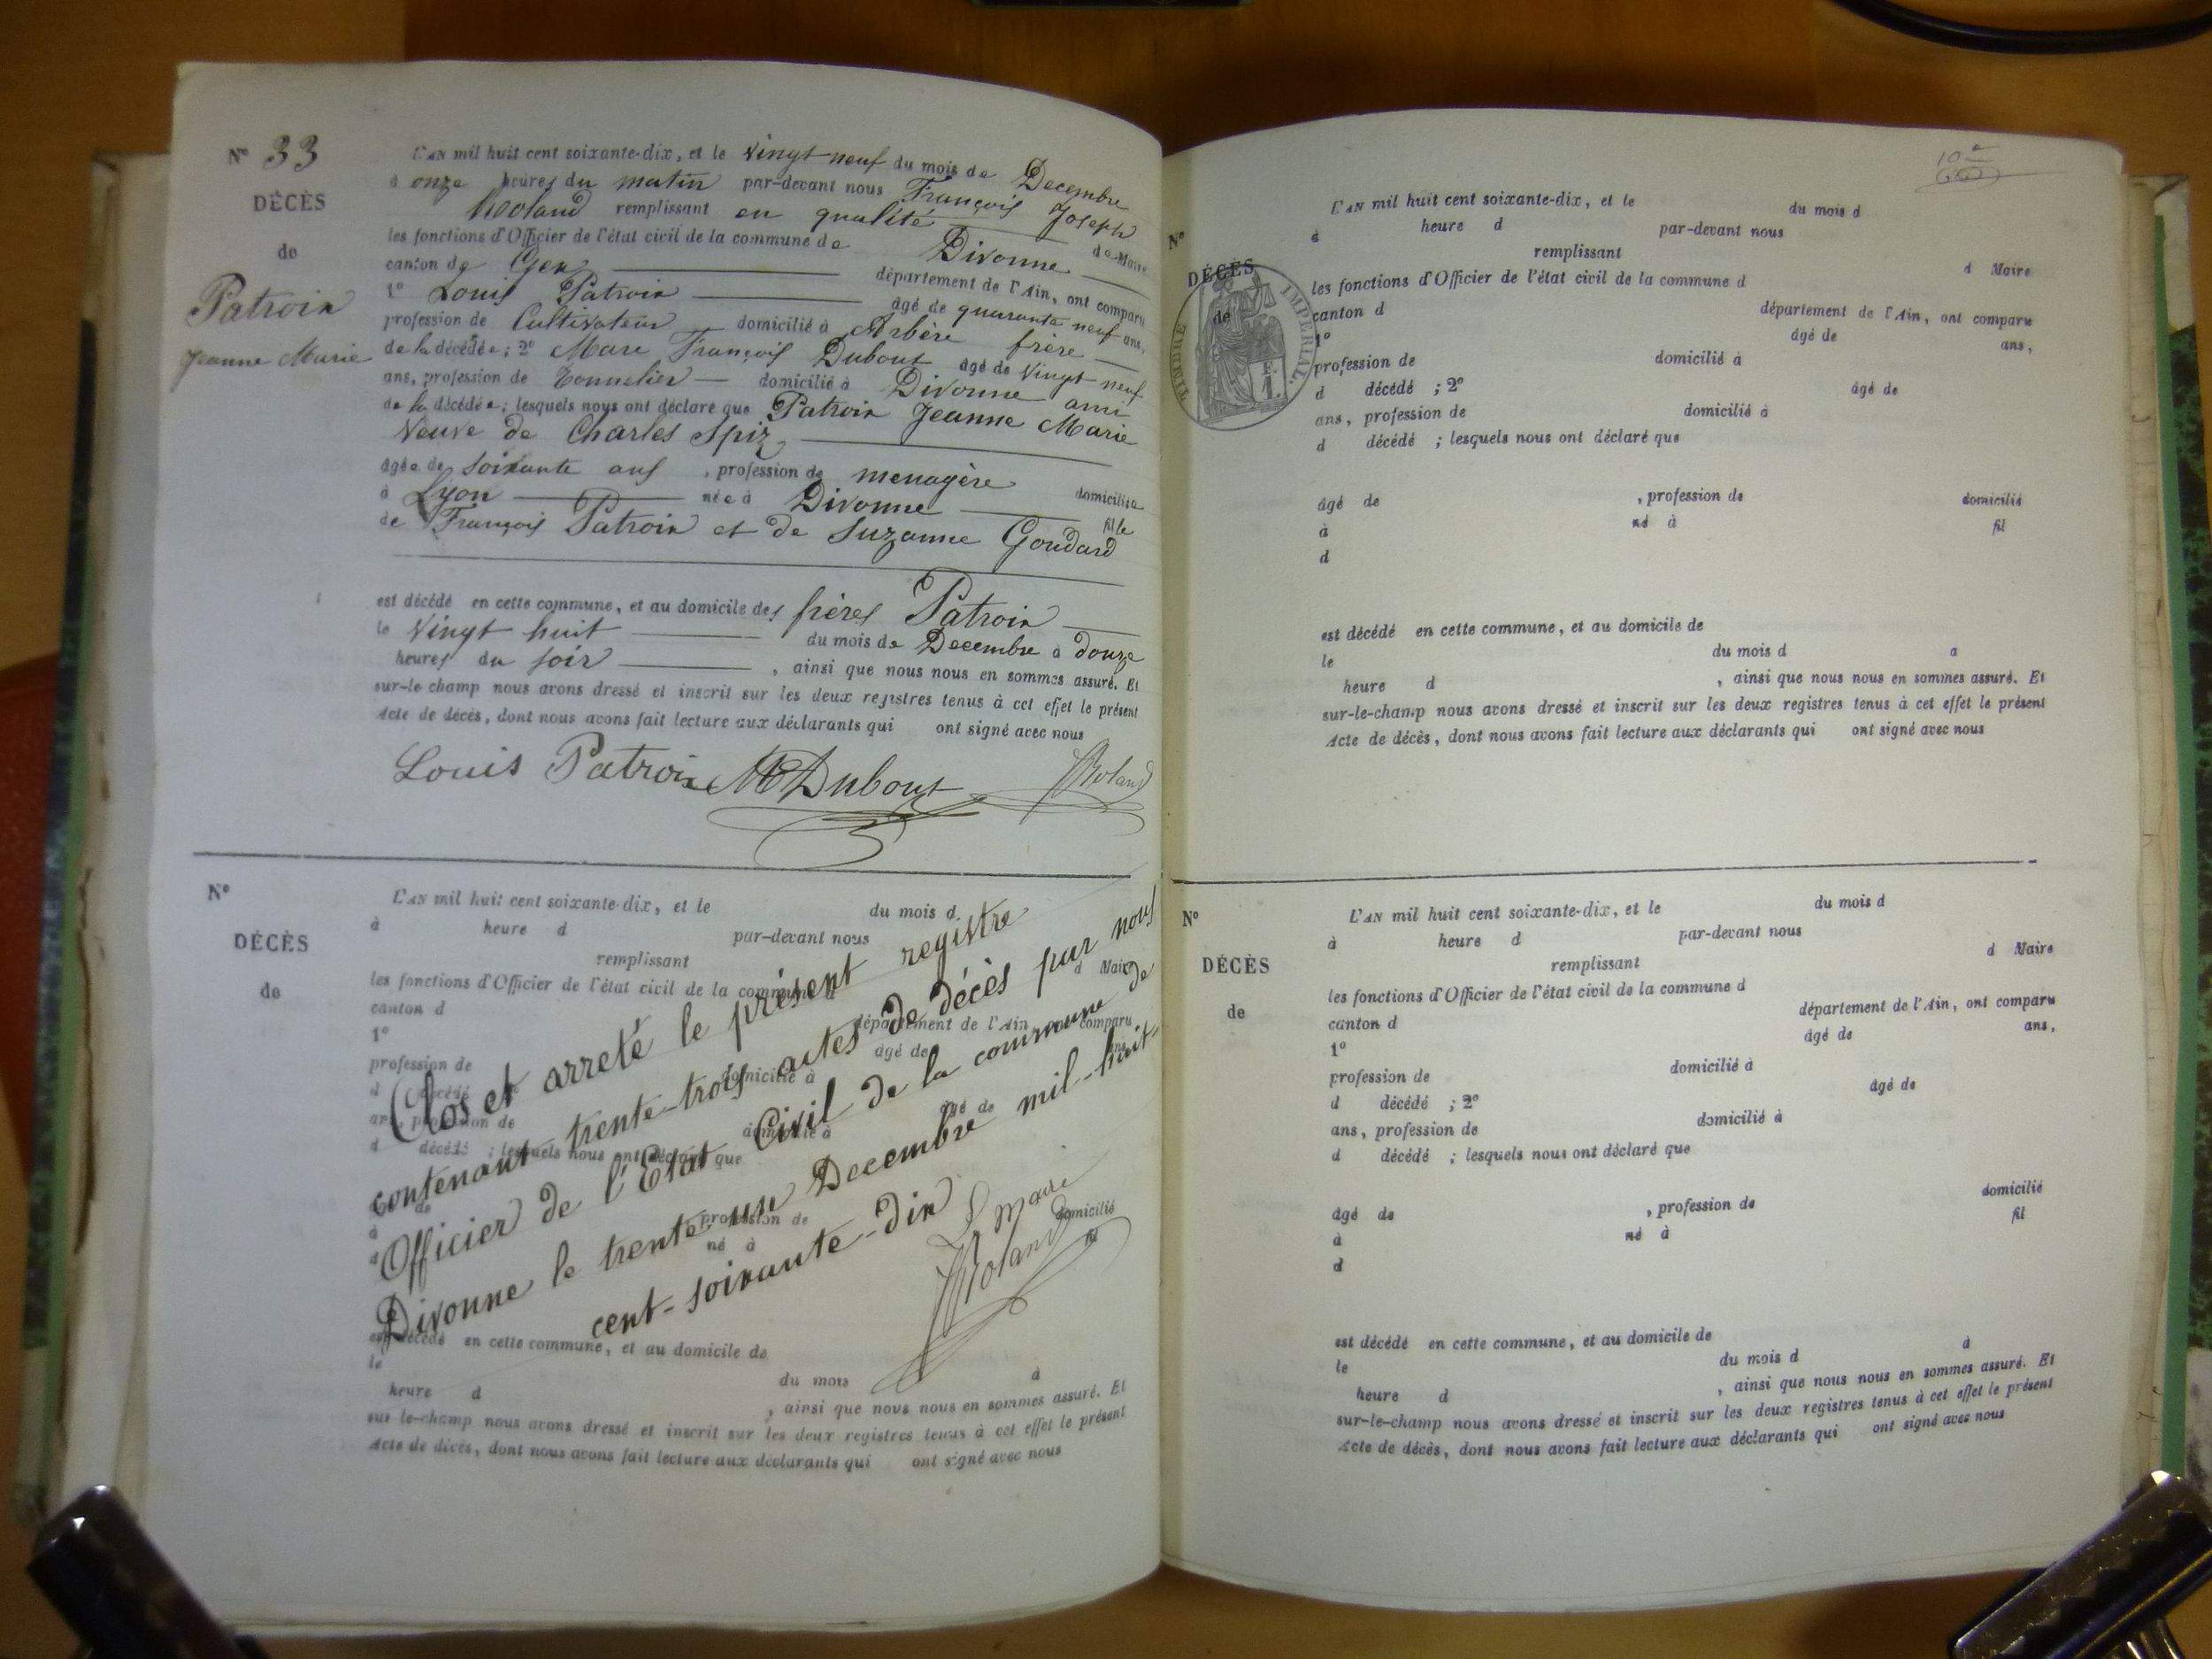 N° 33
DÉCÈS
de
Patroin
Jeanne Marie
L'AN mil huit cent soixante-dix, et le vingt neuf du mois de Decembre
à onze heures du matin par-devant nous François Joseph
Roland remplissant en qualité de Maire
les fonctions d'Officier de l'état civil de la commune de Divonne
canton de Gex département de l'Ain, ont comparu
1° Louis Patroin âgé de quarante neuf ans,
profession de Cultivateur domicilié à Arbère frère
de la décédée; 2° Marc François Dubout âgé de vingt neuf
ans, profession de Tonnelier domicilié à Divonne ami
de la décédée; lesquels nous ont déclaré que Patroin Jeanne Marie
Veuve de Charles Spiz
âgée de soixante ans, profession de menagère domiciliée
à Lyon née à Divonne fille
de François Patroin et de Suzanne Goudard
est décédé en cette commune, et au domicile des frères Patroin
le vingt huit du mois de Decembre à douze
heures du soir, ainsi que nous nous en sommes assuré. Et
sur-le champ nous avons dressé et inscrit sur les deux registres tenus à cet effet le présent
Acte de décès, dont nous avons fait lecture aux déclarants qui ont signé avec nous
Louis Patroin MDubout Roland
N°
DÉCÈS
de
L'AN mil huit cent soixante-dix, et le du mois d
à heure d par-devant nous
remplissant d Maire
les fonctions d'Officier de l'état civil de la commune d
canton d département de l'Ain, ont comparu
1° âgé de ans,
profession de domicilié à
d décédé ; 2° âgé de
ans, profession de domicilié à
d décédé ; lesquels nous ont déclaré que
âgé de , profession de domicilié
à né à fil
d
Clos et arreté le présent registre
contenant trente-trois actes de décès par nous
Officier de l'Etat Civil de la commune de
Divonne le trente-un Decembre mil-huit-
cent-soixante-dix
L Maire
Roland
est décédé en cette commune, et au domicile de
le du mois à
heure d , ainsi que nous nous en sommes assuré. Et
sur le-champ nous avons dressé et inscrit sur les deux registres tenus à cet effet le présent
Acte de décès, dont nous avons fait lecture aux déclarants qui ont signé avec nous
N°
DÉCÈS
de
TIMBRE IMPÉRIAL.
F.
1.
L'AN mil huit cent soixante-dix, et le du mois d
à heure d par-devant nous
remplissant d Maire
les fonctions d'Officier de l'état civil de la commune d
canton d département de l'Ain, ont comparu
1° âgé de ans,
profession de domicilié à
d décédé ; 2° âgé de
ans, profession de domicilié à
d décédé ; lesquels nous ont déclaré que
âgé de , profession de domicilié
à né à fil
d
est décédé en cette commune, et au domicile de
le du mois d a
heure d , ainsi que nous nous en sommes assuré. Et
sur-le-champ nous avons dressé et inscrit sur les deux registres tenus à cet effet le présent
Acte de décès, dont nous avons fait lecture aux déclarants qui ont signé avec nous
N°
DÉCÈS
de
L'AN mil huit cent soixante-dix, et le du mois d
à heure d par-devant nous
remplissant d Maire
les fonctions d'Officier de l'état civil de la commune d
canton d département de l'Ain, ont comparu
1° âgé de ans,
profession de domicilié à
d décédé ; 2° âgé de
ans, profession de domicilié à
d décédé ; lesquels nous ont déclaré que
âgé de , profession de domicilié
à né à fil
d
est décédé en cette commune, et au domicile de
le du mois d à
heure d , ainsi que nous nous en sommes assuré. Et
sur-le-champ nous avons dressé et inscrit sur les deux registres tenus à cet effet le présent
Acte de décès, dont nous avons fait lecture aux déclarants qui ont signé avec nous